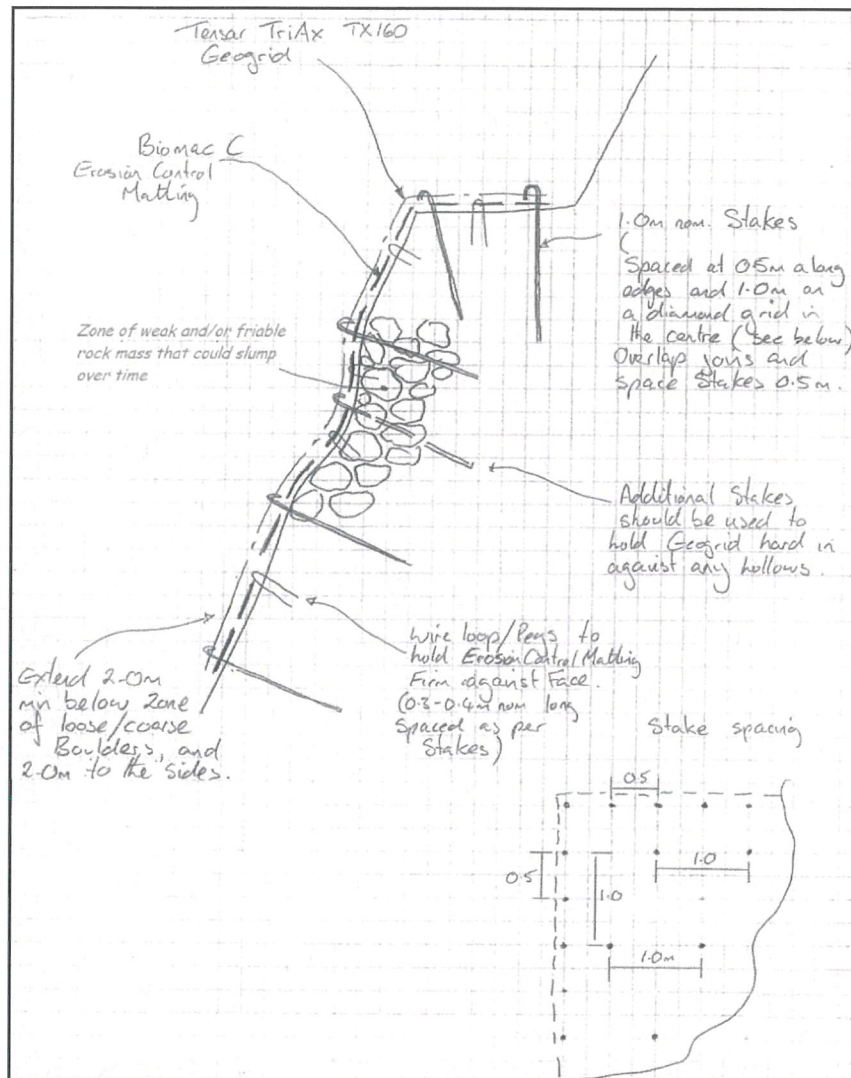 Tensar TriAx TX160
Geogrid
Biomac C
Erosion Control
Matting
Zone of weak and/or friable
rock mass that could slump
over time
1.0m nom. Stakes
(
Spaced at 0.5m along
edges and 1.0m on
a diamond grid in
the centre (see below)
Overlap joins and
space Stakes 0.5m.
Additional Stakes
should be used to
hold Geogrid hard in
against any hollows.
Wire loop/Pegs to
hold Erosion Control Matting
Firm against Face.
(0.3-0.4m nom long
Spaced as per
Stakes)
Extend 2.0m
min below Zone
of loose/coarse
Boulders, and
2.0m to the Sides.
Stake spacing
0.5
0.5
1.0
1.0
1.0m